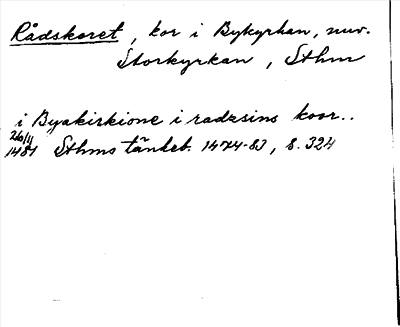 Rådskoret, kor i Bykyrkan, nuv.
Storkyrkan, Sthm
i Byakirkione i radzsins koor..
26/11
1481 Sthms tänkeb. 1474-83, s. 324